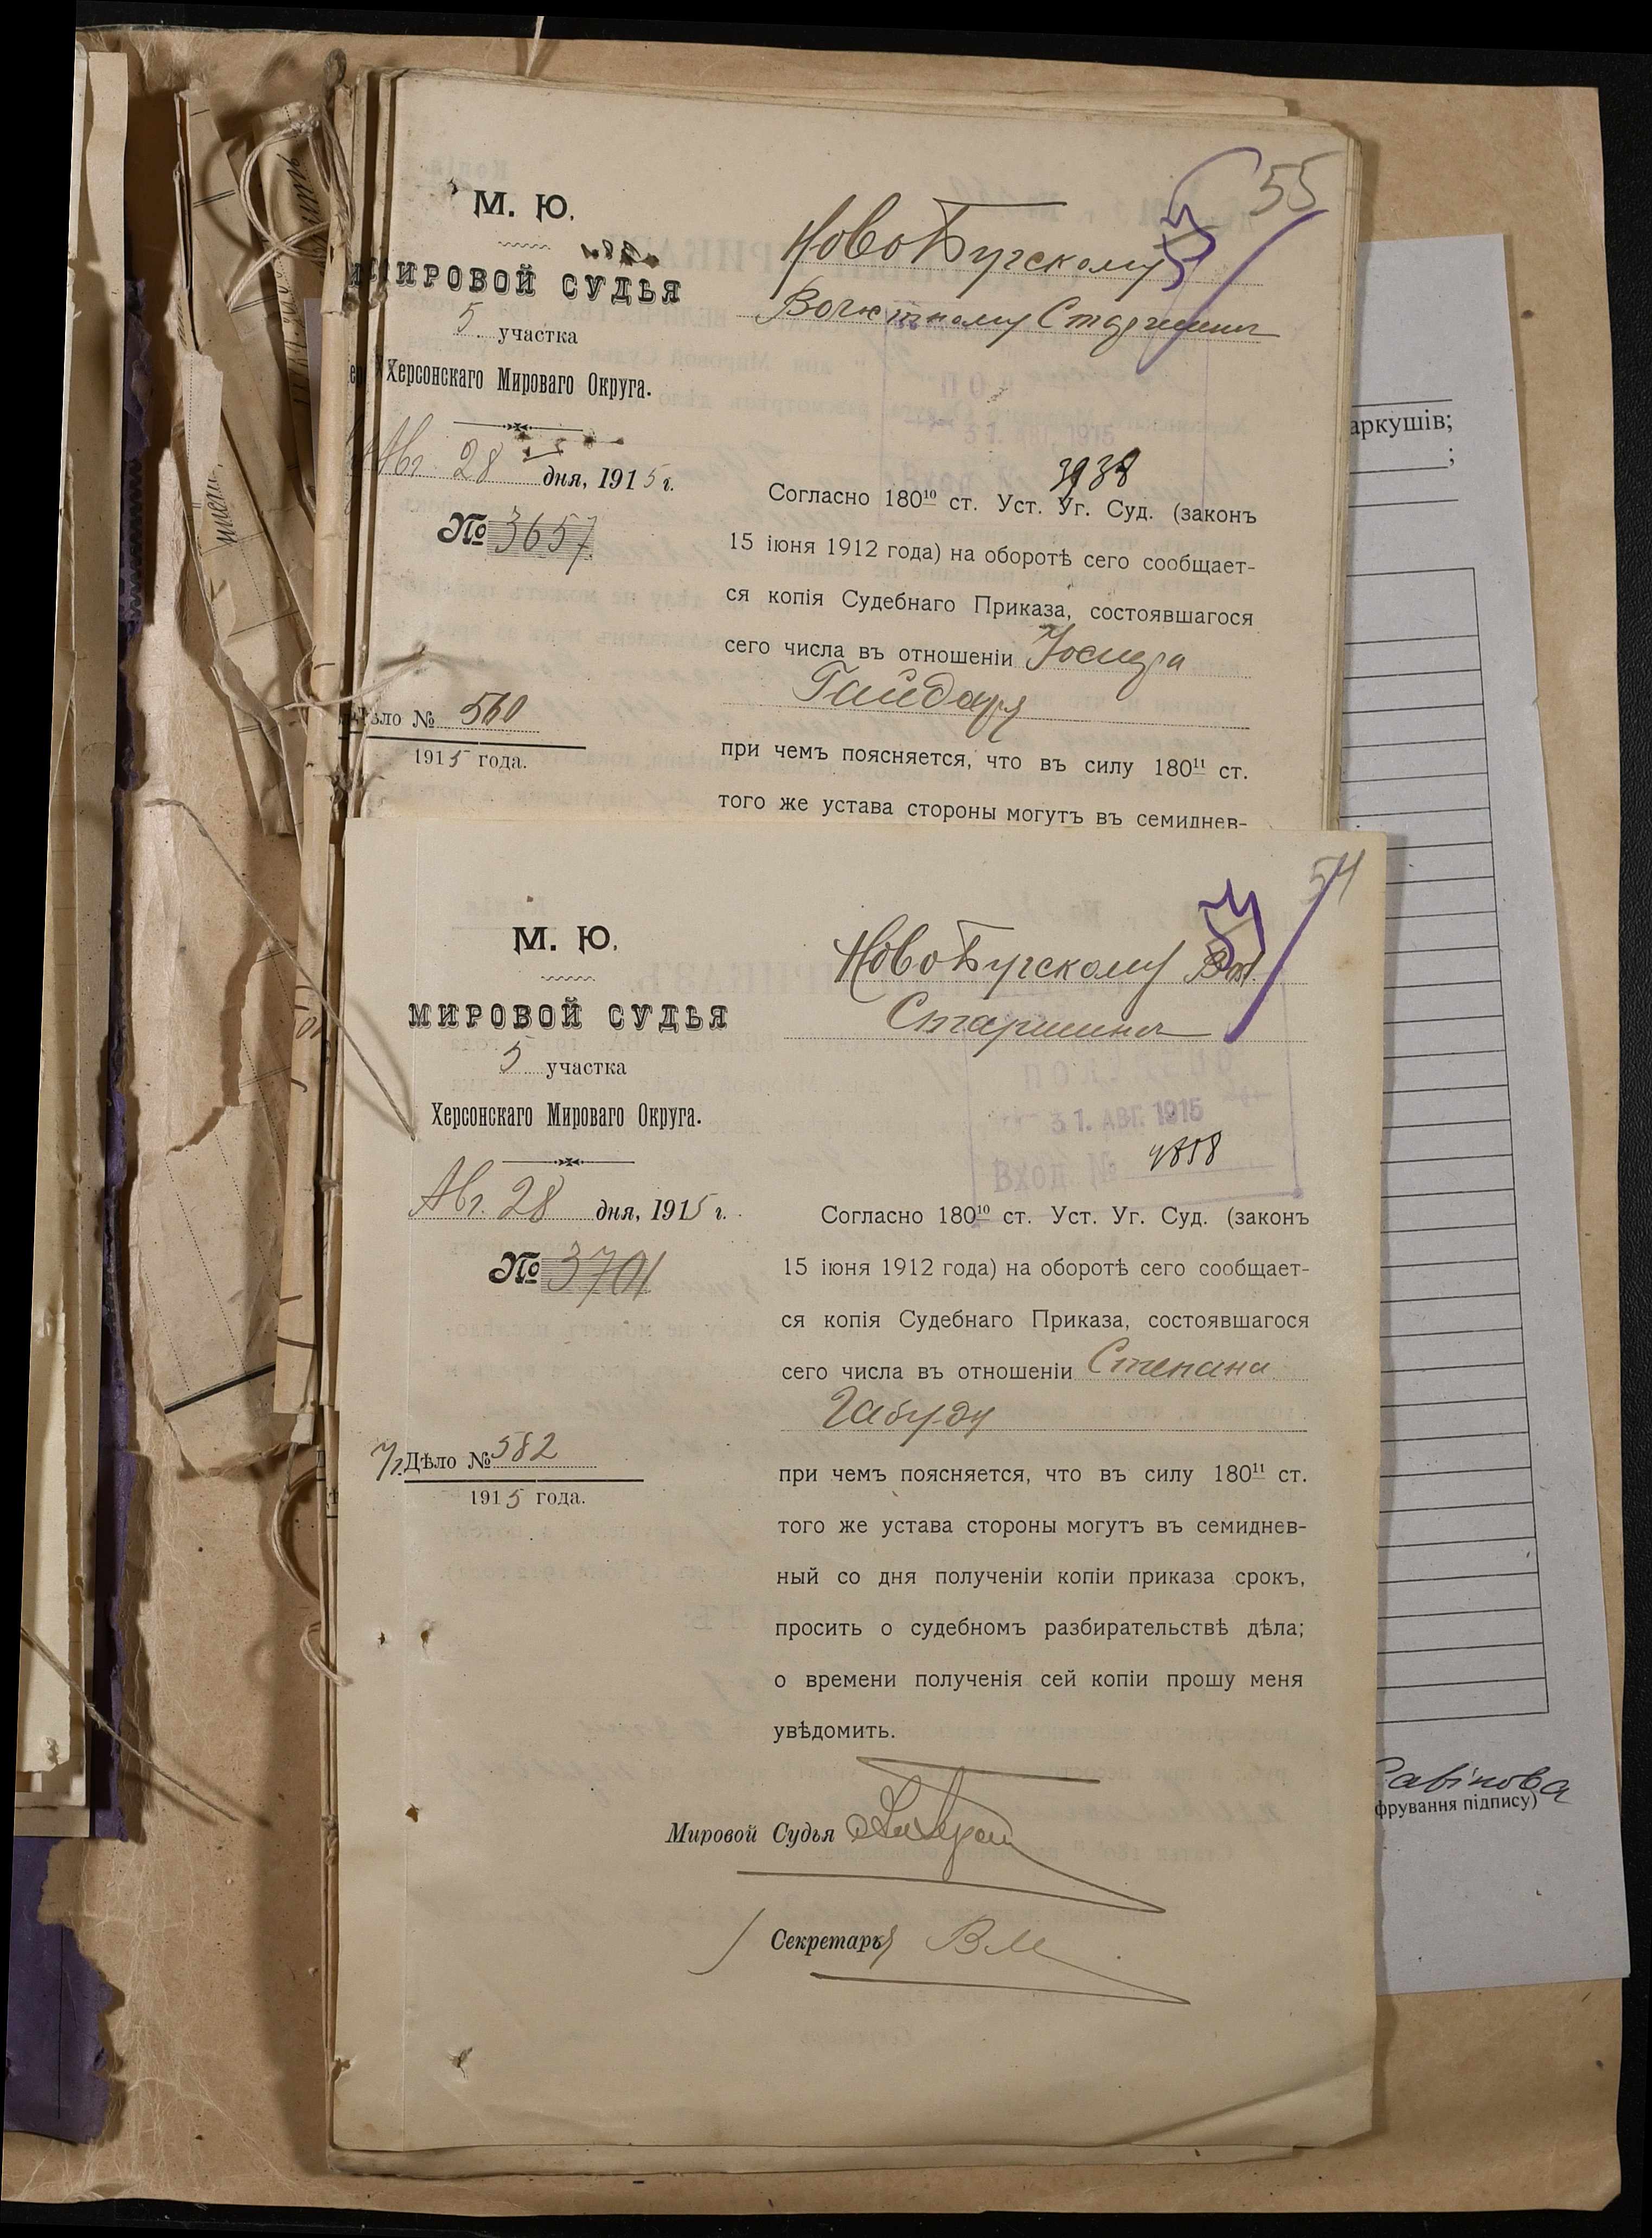 55
М. Ю.
МИРОВОЙ СУДЬЯ
5 участка
Херсонскаго Мироваго Округа.
Авг. 28 дня, 1915 г.
№ 3657
Дѣло № 560
1915 года.
НовоБугскому
Волостному Старшине
31. АВГ. 1915
3938
Согласно 180¹⁰ ст. Уст. Уг. Суд. (законъ
15 іюня 1912 года) на оборотѣ сего сообщает-
ся копія Судебнаго Приказа, состоявшагося
сего числа въ отношеніи Іосифа
Гайдаря
при чемъ поясняется, что въ силу 180¹¹ ст.
того же устава стороны могутъ въ семиднев-
54
М. Ю.
МИРОВОЙ СУДЬЯ
5 участка
Херсонскаго Мироваго Округа.
Авг. 28 дня, 1915 г.
№ 3701
Уг. Дѣло № 582
1915 года.
НовоБугскому Вол.
Старшине
ПОЛУЧЕНО
31. АВГ. 1915
Вход. №
Согласно 180¹⁰ ст. Уст. Уг. Суд. (законъ
15 іюня 1912 года) на оборотѣ сего сообщает-
ся копія Судебнаго Приказа, состоявшагося
сего числа въ отношеніи Степана
при чемъ поясняется, что въ силу 180¹¹ ст.
того же устава стороны могутъ въ семиднев-
ный со дня полученіи копіи приказа срокъ,
просить о судебномъ разбирательствѣ дѣла;
о времени полученія сей копіи прошу меня
увѣдомить.
Мировой Судья
Секретарь
аркушів;
;
Савінова
фрування підпису)